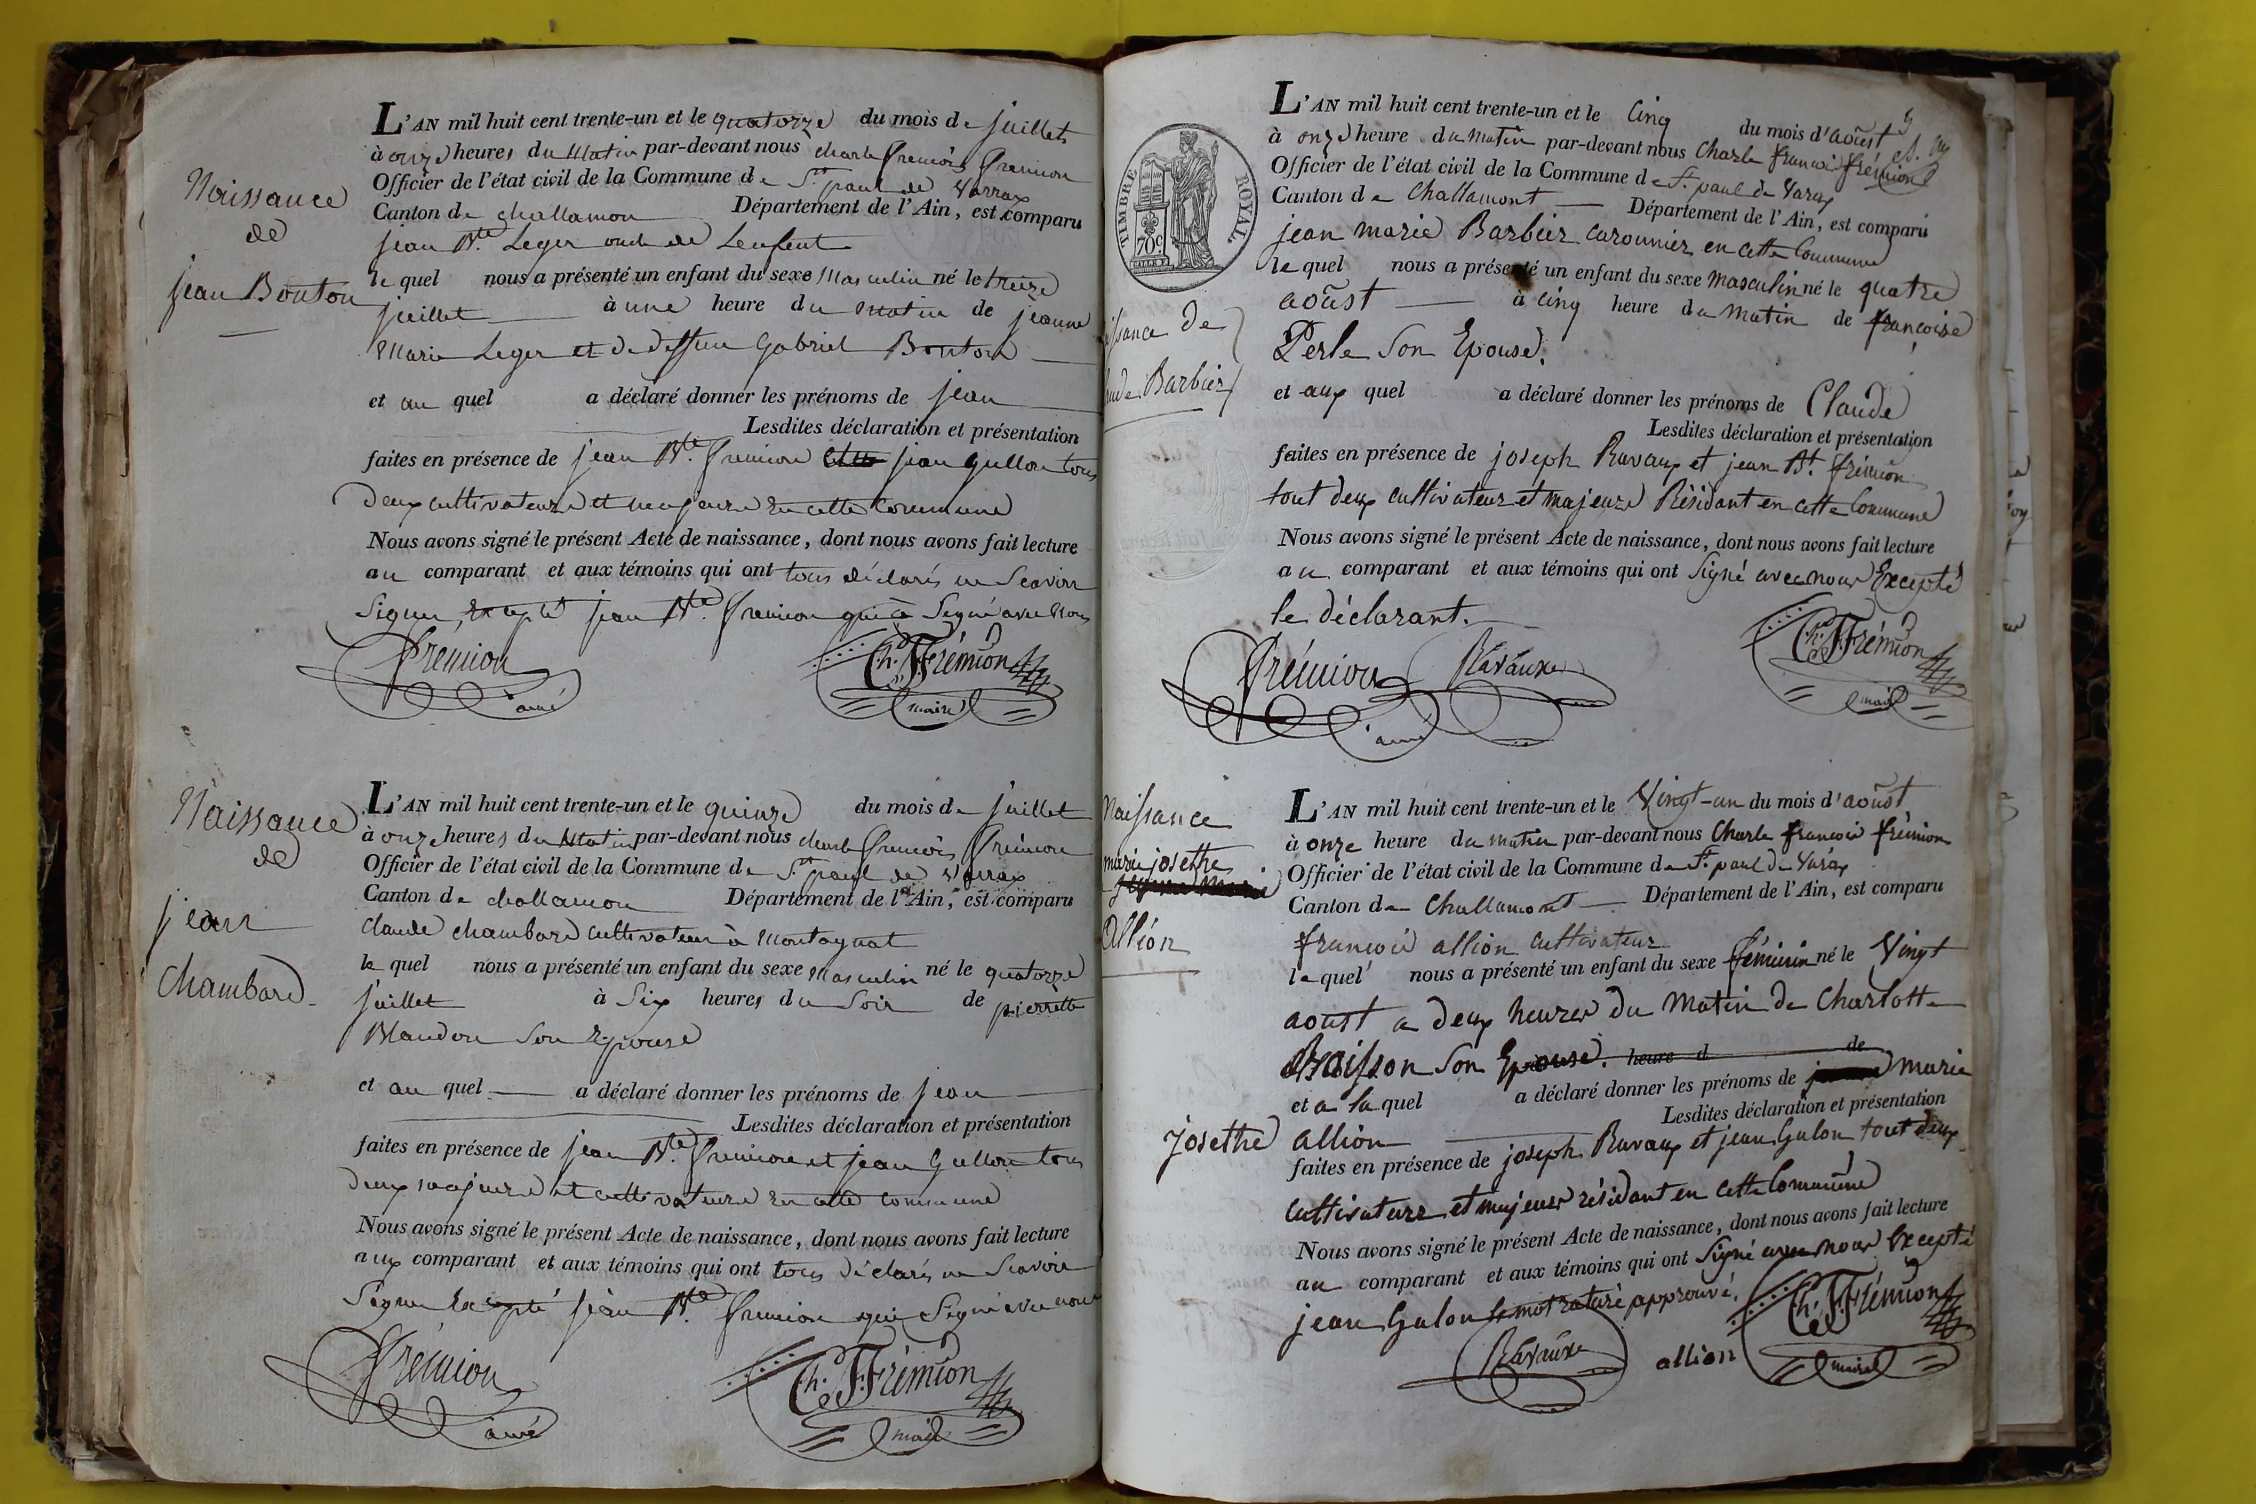 Naissance
de
jean Bouton
L'AN mil huit cent trente-un et le quatorze du mois de juillet
à onze heures du Matin par-devant nous charle françois fremion
Officier de l'état civil de la Commune de St. paul de Varrax
Canton de challamon Département de l'Ain, est comparu
jean Bte. Leger oncle de Lenfent
le quel nous a présenté un enfant du sexe Masculin né le treize
juillet à une heure du matin de jeanne
Marie Leger et de deffun Gabriel Bouton
et au quel a déclaré donner les prénoms de jean
Lesdites déclaration et présentation
faites en présence de jean Bte. fremion jean gullon tous
deux cultivateure et majeure en cette Commune
Nous avons signé le présent Acte de naissance, dont nous avons fait lecture
au comparant et aux témoins qui ont tous déclarés ne Scavoir
Signer, excepté jean Bte. fremion qui à Signé avec Nous
fremion ainé
Ch. F. Frémion maire
Naissance
de
jean
Chambard
L'AN mil huit cent trente-un et le quinze du mois de juillet
à onze heures du Matin par-devant nous charle françois frémion
Officier de l'état civil de la Commune de St. paul de Varrax
Canton de challamon Département de l'Ain, est comparu
Claude chambard cultivateur à Montagnat
le quel nous a présenté un enfant du sexe Masculin né le quatorze
juillet à Six heures du Soir de pierrette
Blandon Son Epouse
et au quel a déclaré donner les prénoms de jean
Lesdites déclaration et présentation
faites en présence de jean Bte. fremion et jean Gullon tous
deux majeure et cultivateure en cette commune
Nous avons signé le présent Acte de naissance, dont nous avons fait lecture
aux comparant et aux témoins qui ont tous déclarés ne Scavoir
Signer Excepté jean Bte. fremion qui Signé avec nous
frémion ainé
Ch. F. Frémion maire
TIMBRE ROYAL
70c
issance de
ude Barbier
L'AN mil huit cent trente-un et le Cinq du mois d'aoûst
à onze heure du matin par-devant nous Charle françois frémion
Officier de l'état civil de la Commune de St. paul de Varax
Canton de Challamont Département de l'Ain, est comparu
jean marie Barbier caronnier en cette Commune
le quel nous a présenté un enfant du sexe masculin né le quatre
aoûst à cinq heure du matin de françoise
Perle Son Epouse.
et aux quel a déclaré donner les prénoms de Claude
Lesdites déclaration et présentation
faites en présence de joseph Ravaux et jean Bt. frémion
tout deux cultivateur et majeure Résidant en cette Commune
Nous avons signé le présent Acte de naissance, dont nous avons fait lecture
au comparant et aux témoins qui ont Signé avec nous Excepté
le déclarant.
frémion ainé
Ravaux
Ch. F. Frémion maire
Naissance
marie josethe
Allion
L'AN mil huit cent trente-un et le Vingt-un du mois d'aoûst
à onze heure du matin par-devant nous Charle françois frémion
Officier de l'état civil de la Commune de St. paul de Varax
Canton de Challamont Département de l'Ain, est comparu
françois allion cultivateur
le quel nous a présenté un enfant du sexe féminin né le Vingt
aoust a deux heures du Matin de Charlotte
Baisson Son Epouse. heure d de
et a la quel a déclaré donner les prénoms de marie
Lesdites déclaration et présentation
josethe allion
faites en présence de joseph Ravaux et jean Gulon tout deux
cultivateurs et majeurs résidant en cette Commune
Nous avons signé le présent Acte de naissance, dont nous avons fait lecture
au comparant et aux témoins qui ont Signé avec nous Excepté
jean Gulon le mot raturé approuvé.
Ravaux
allion
Ch. F. Frémion maire